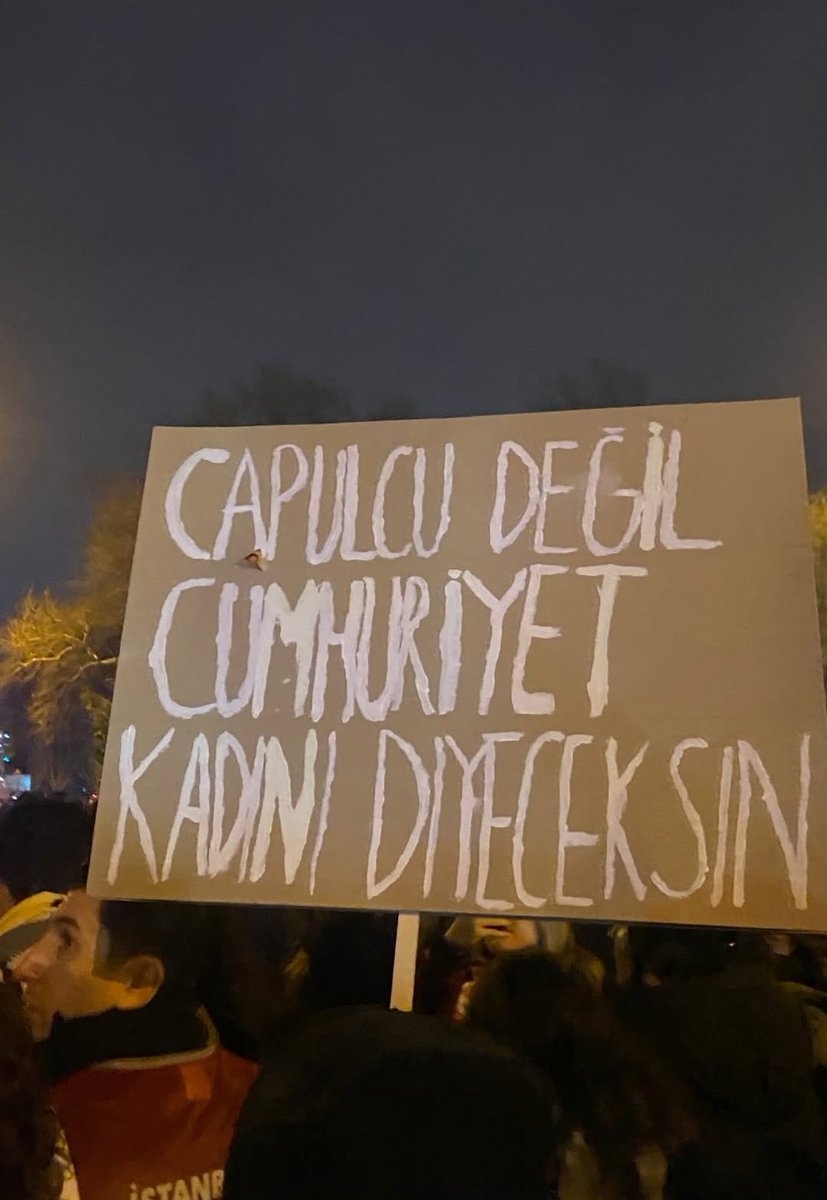 CAPULCU DEĞİL
CUMHURİYET
KADINI DIYECEKSIN
İSTANB